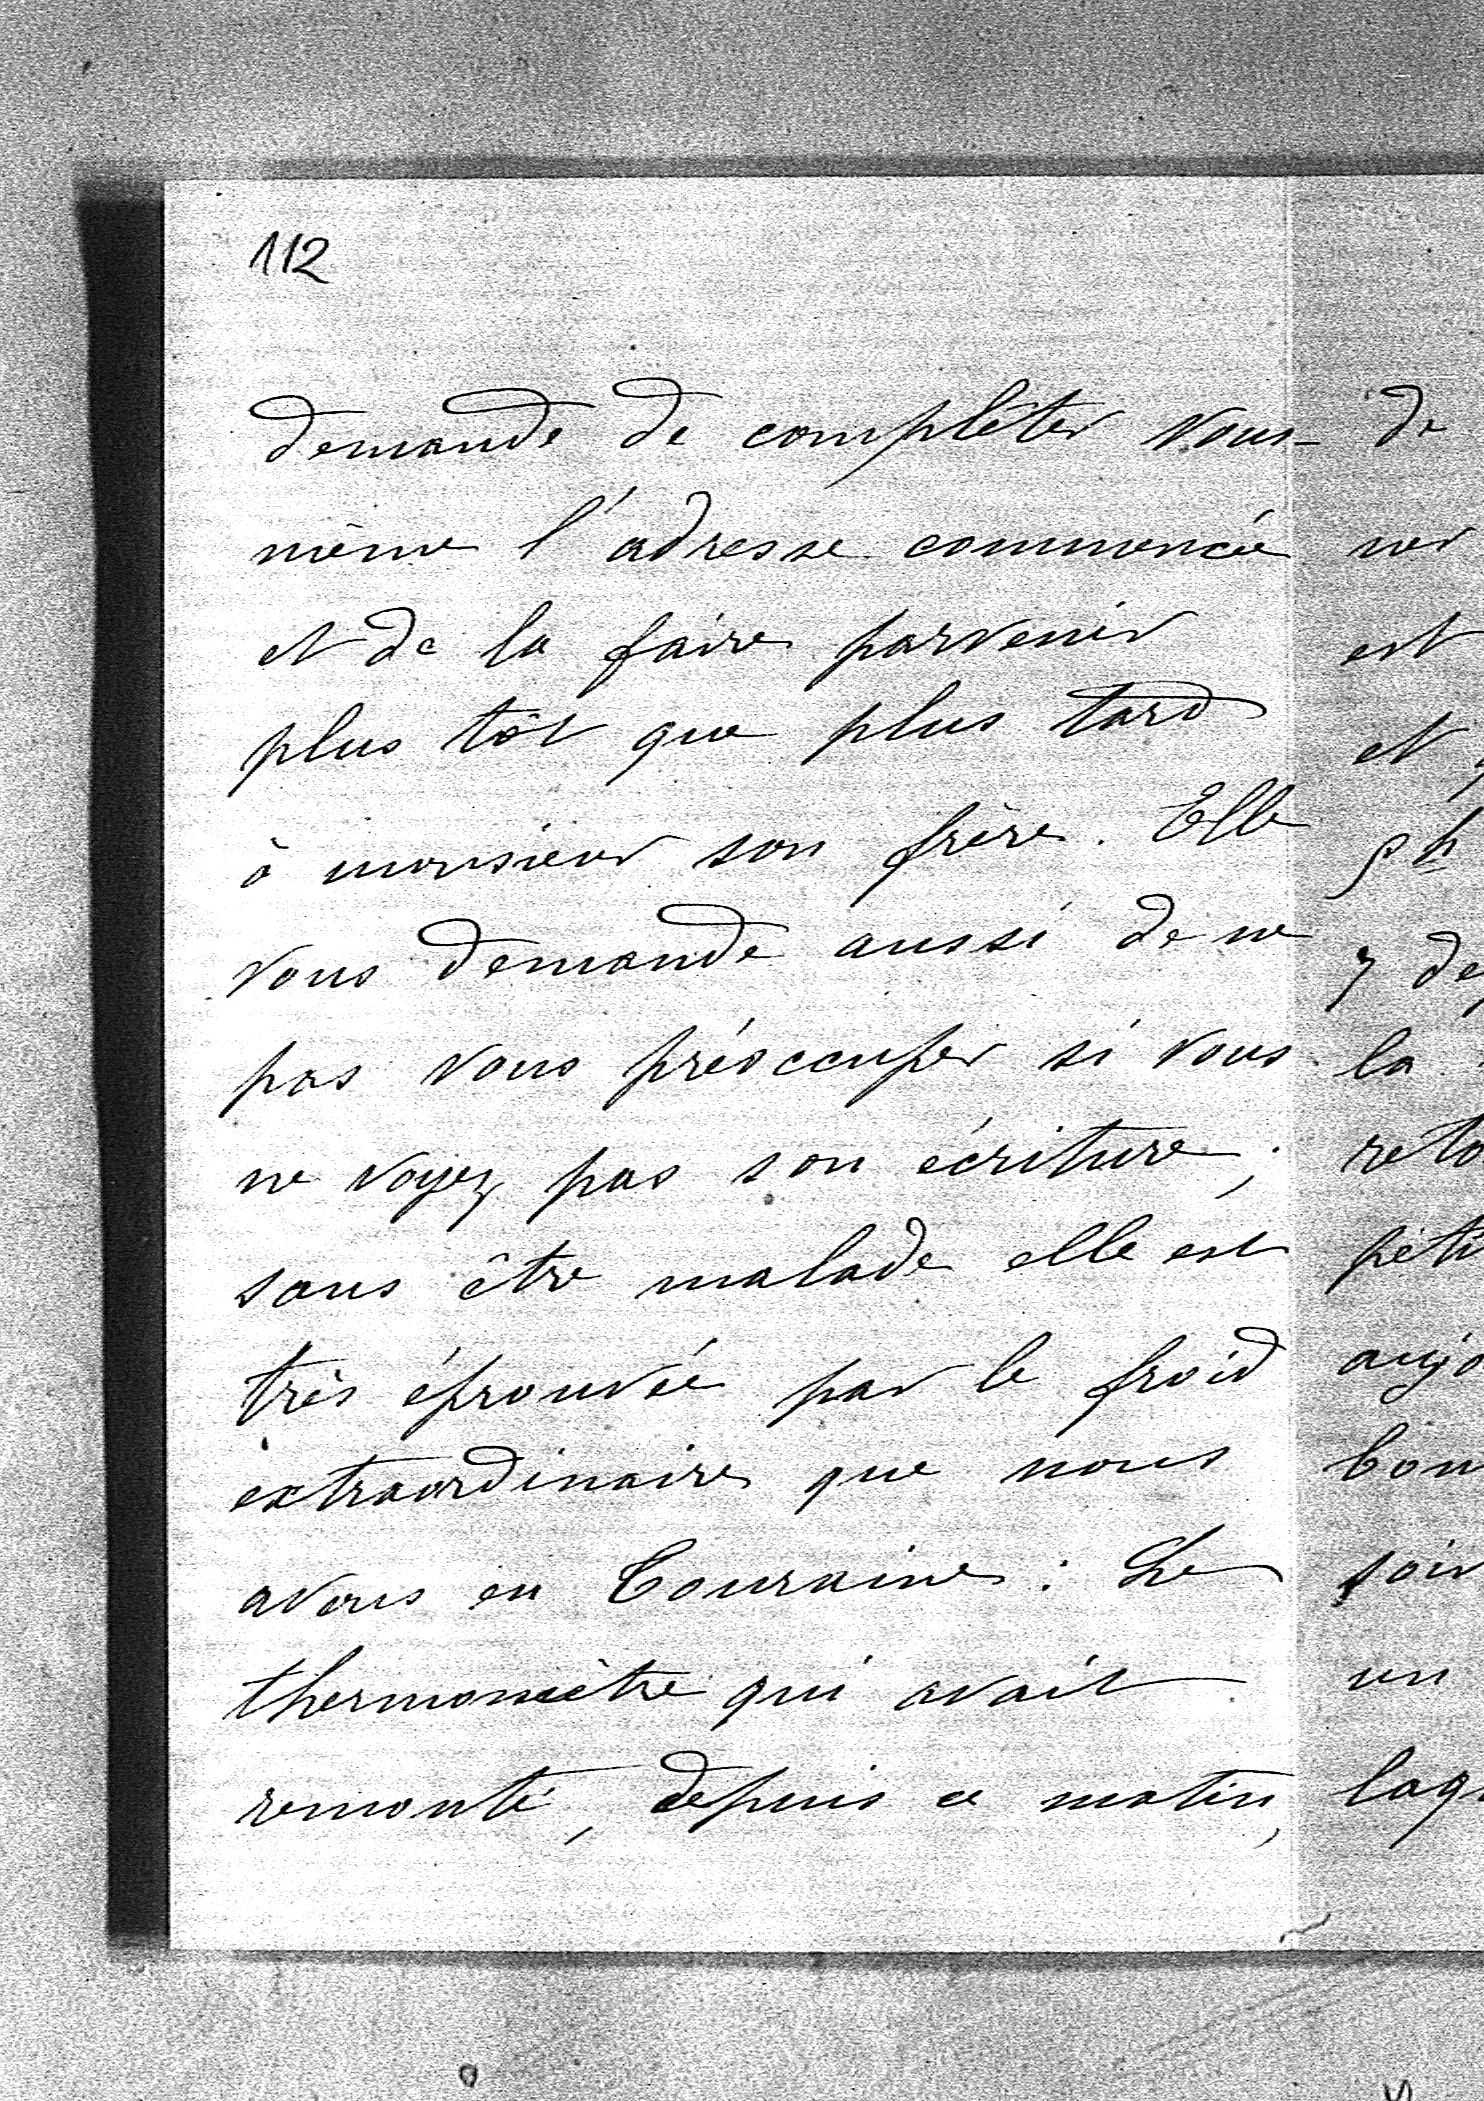 112
demande de complèter vous-
même l'adresse commencée
et de la faire parvenir
plus tôt que plus tard
à monsieur son frère. Elle
vous demande aussi de ne
pas vous préoccuper si vous
ne voyez pas son écriture ;
sans être malade elle est
très éprouvée par le froid
extraordinaire que nous
avons en Touraine : Le
thermomètre qui avait
remonté, depuis ce matin,
de
ner
est
et
5 h
7 de
la
reto
peti
aujo
bon
soir
un
laqu